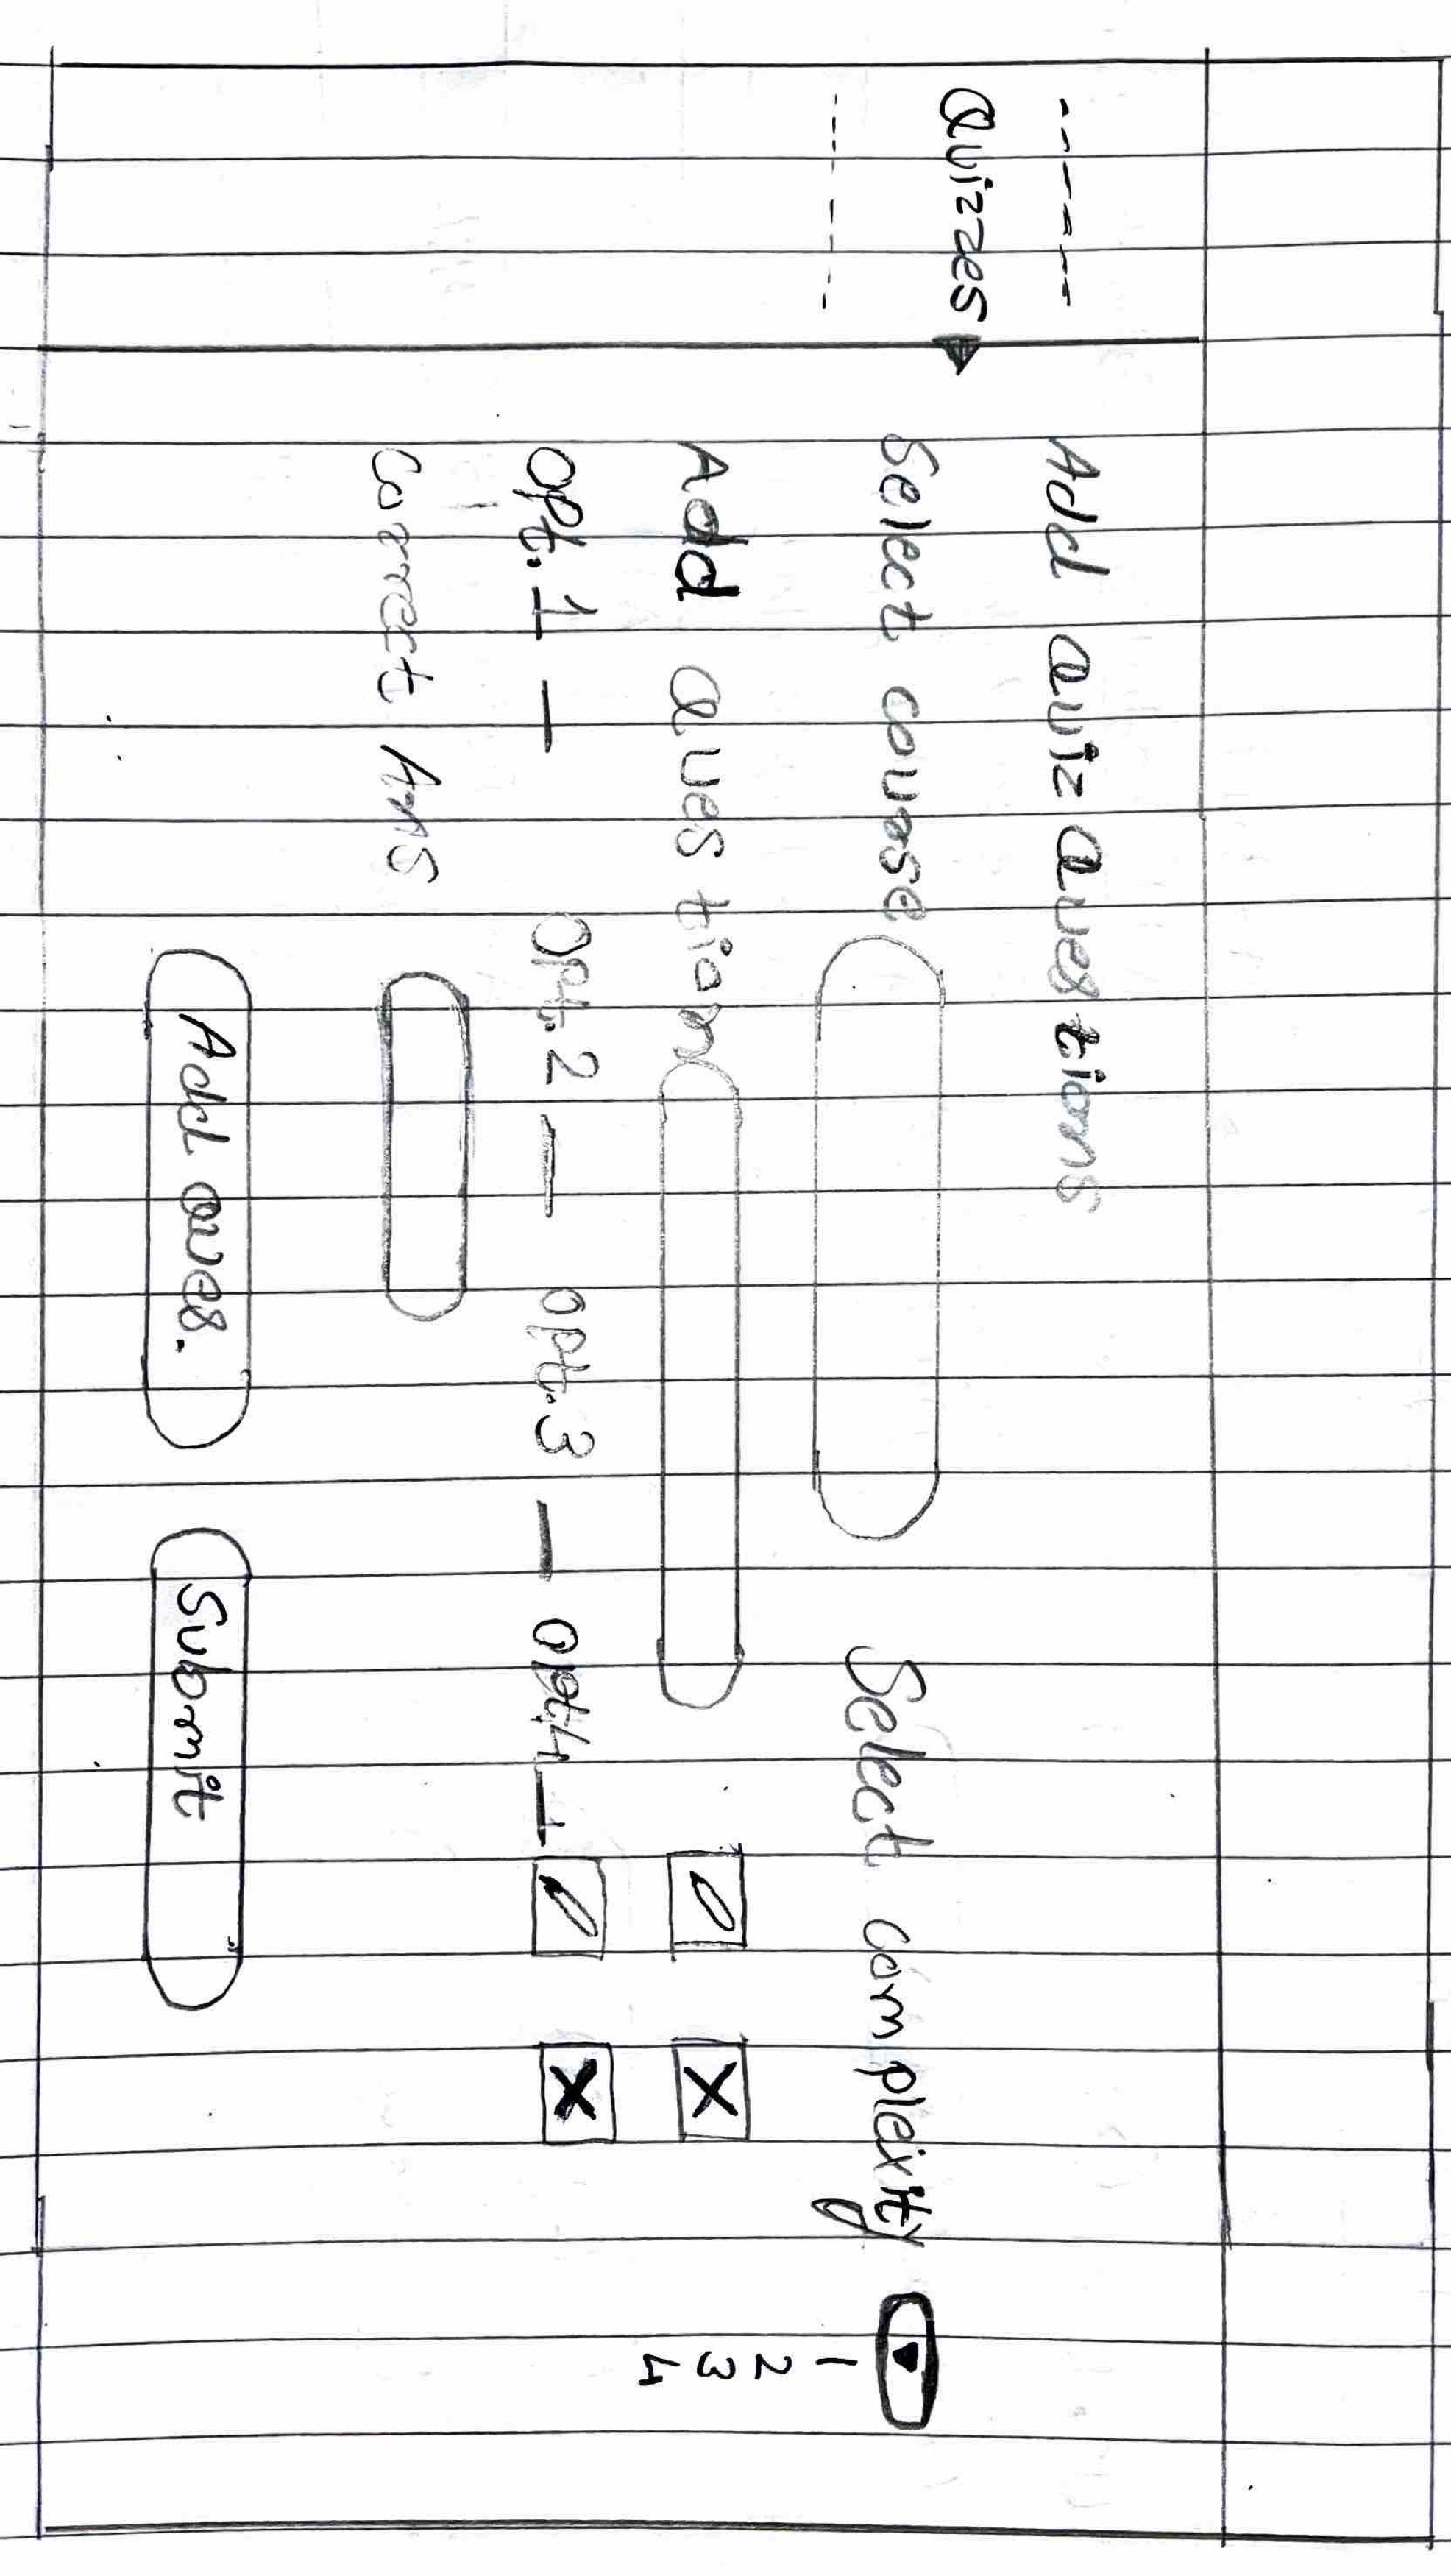 Add Quiz Questions
Quizzes
Select course Select complexity
1
2
3
4
Add Question X
Opt. 1 — Opt. 2 — Opt. 3 — Opt.4 — X
Correct Ans
Add Ques. Submit